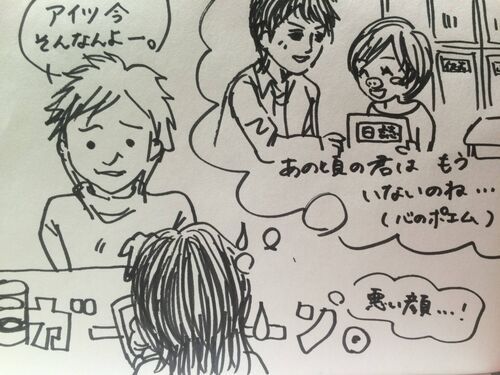 アイツ 今
そんなんよー。
日誌
あの頃の君は もう
いないのね…
(心のポエム)
ガーン。
悪い顔…!